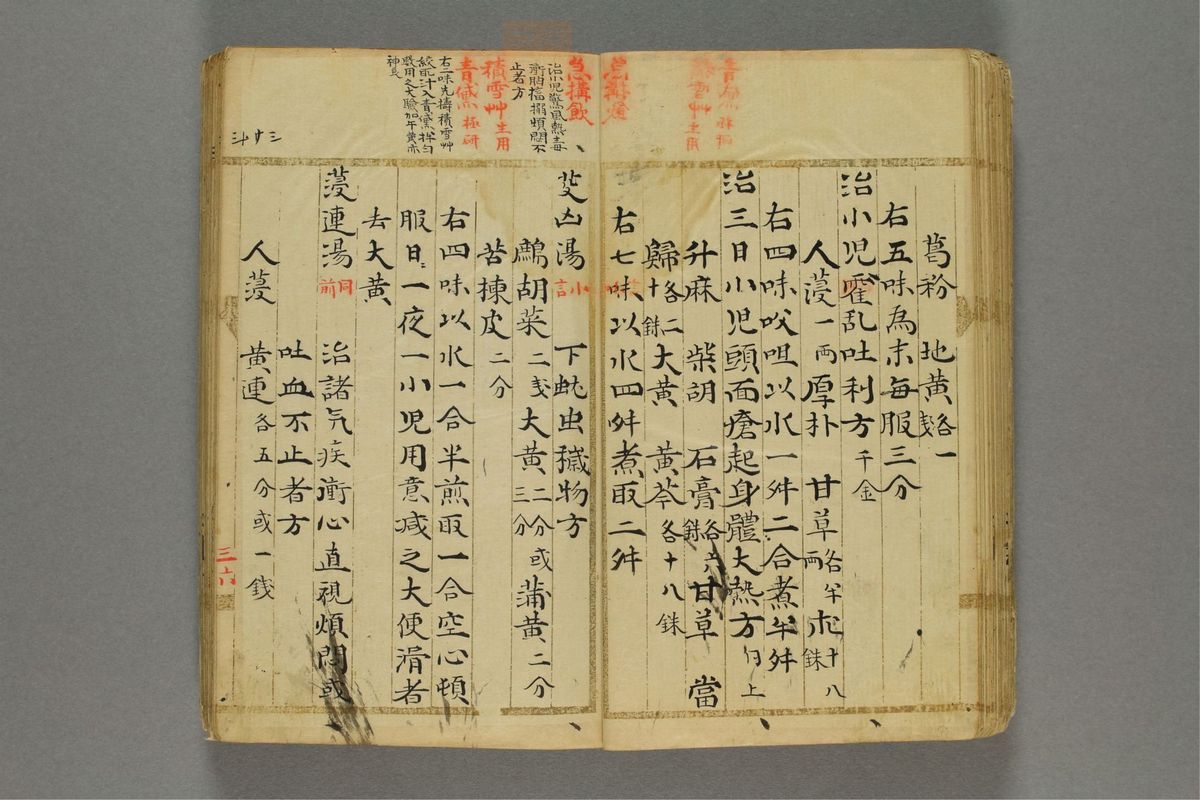 葛粉 地黄各一戔
右五味為末每服三分
治小児霍乱吐利方千金
人蓡一両 厚朴 甘草各半両 朮十八銖
右四味㕮咀以水一舛二合煮半舛
治三日小児頭面瘡起身體大熱方同上
升麻 柴胡 石膏各六銖 甘草 當
歸各十二銖 大黄 黄芩各十八銖
右七味以水四舛煮取二舛
急搆飲
治小児驚風熱毒
前胸搐搦煩悶不
止者方
積雪艸生用
青黛極研
右二味先擣積雪艸
絞取汁入青黛拌匀
服用之大驗加牛黄亦
神良
艾凶湯小言 下虵虫穢物方
鷓胡菜二戔 大黄二分或三分 蒲黄二分
苦楝皮二分
右四味以水一合半煎取一合空心頓
服日々一夜一小児用意减之大便滑者
去大黄
蓡連湯同前 治諸気疾衝心直視煩悶或
吐血不止者方
人蓡 黄連各五分或一錢
三六